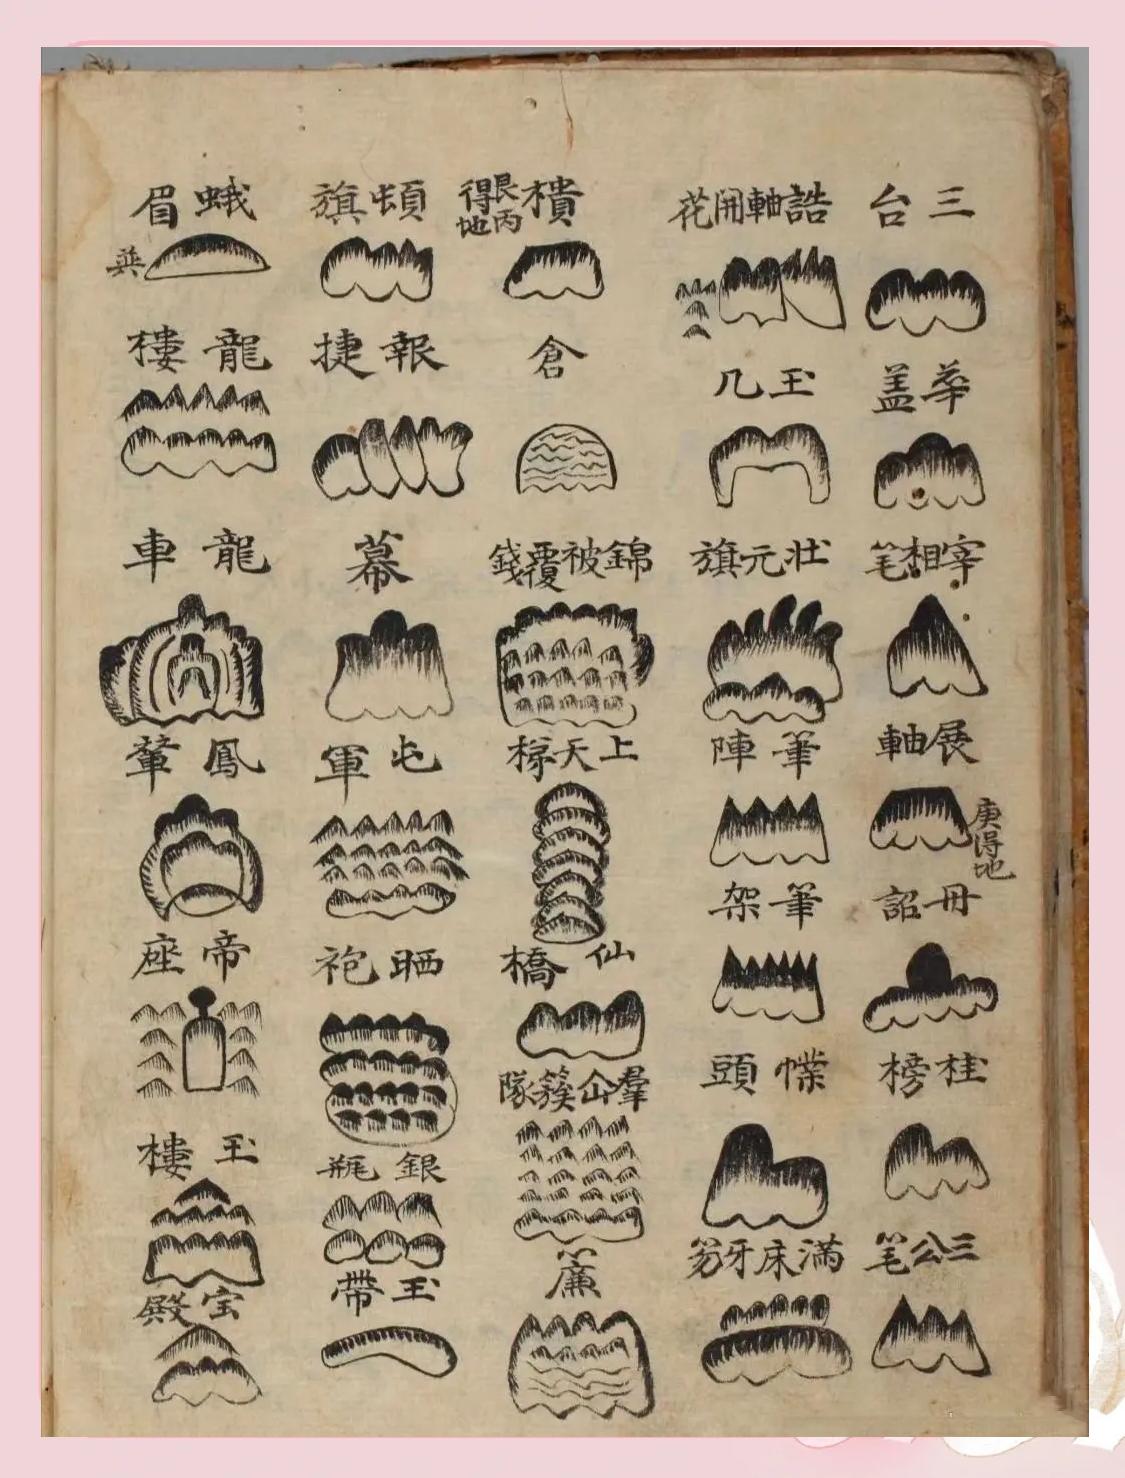 三台
華盖
宰相笔
展軸
庚得地
冊詔
桂榜
三公笔
誥軸開花
玉几
壮元旗
筆陣
筆架
幞頭
满床牙笏
樻
艮丙得地
倉
錦被覆錢
上天梯
仙橋
羣仚簇隊
簾
頓旗
報捷
幕
屯軍
晒袍
銀瓶
玉帶
蛾眉
龍樓
龍車
鳳輦
帝座
玉樓
宝殿